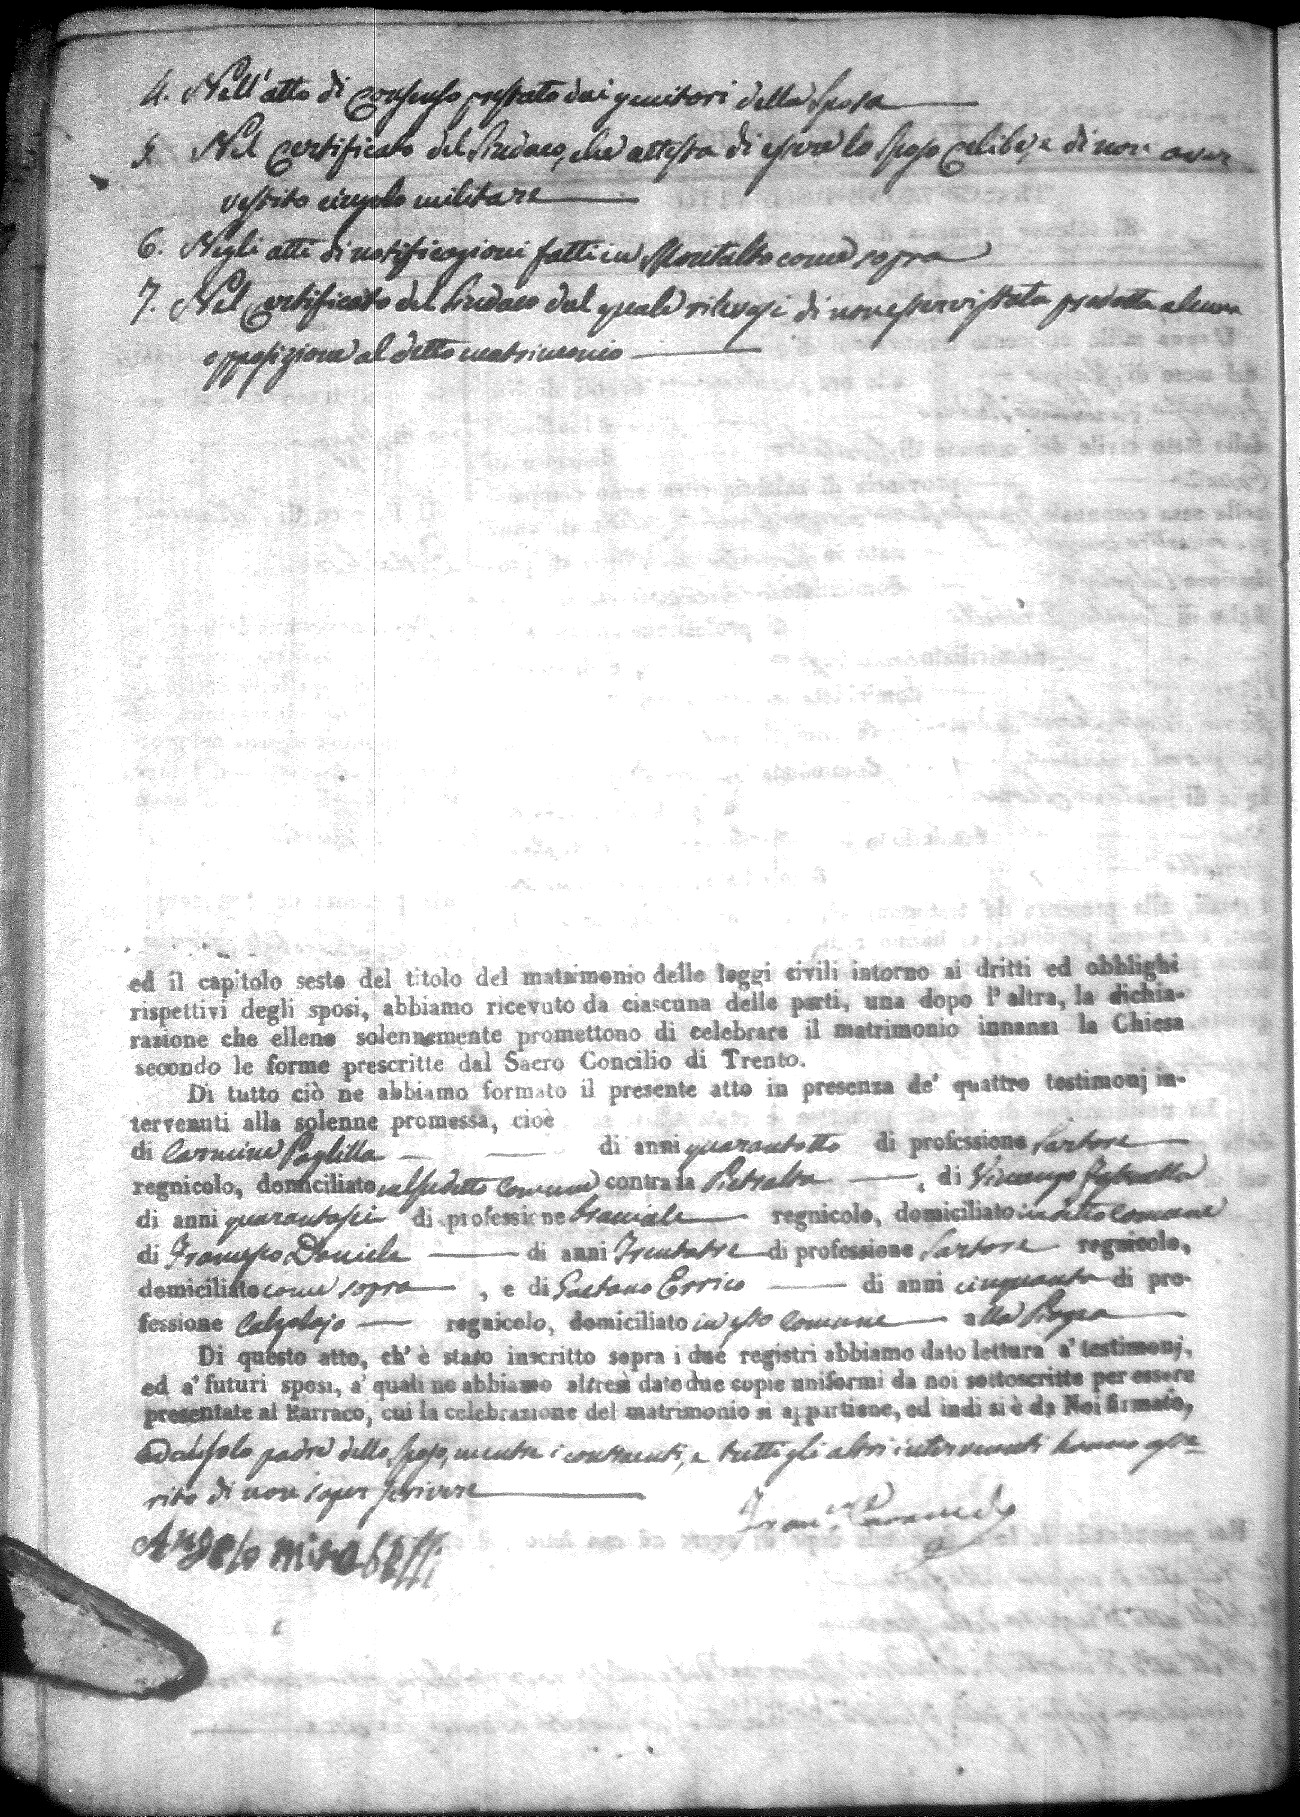 4. Nell'atto di consenso prestato dai genitori della Sposa
5. Nel certificato del Sindaco, che attesta di essere lo Sposo celibe, e di non aver
vestito cingolo militare
6. Negli atti di notificazioni fatti in Montalto come sopra
7. Nel certificato del Sindaco dal quale rilevasi di non esservi stata prodotta alcuna
opposizione al detto matrimonio
ed il capitolo sesto del titolo del matrimonio delle leggi civili intorno ai dritti ed obblighi
rispettivi degli sposi, abbiamo ricevuto da ciascuna delle parti, una dopo l'altra, la dichia-
razione che elleno solennemente promettono di celebrare il matrimonio innanzi la Chiesa
secondo le forme prescritte dal Sacro Concilio di Trento.
Di tutto ciò ne abbiamo formato il presente atto in presenza de' quattro testimonj in-
tervenuti alla solenne promessa, cioè
di Carmine Paglilla di anni quarantotto di professione Sartore
regnicolo, domiciliato nel sudetto Comune contrada Pietralta, di Vincenzo
di anni quarantasei di professione bracciale regnicolo, domiciliato in detto comune
di Francesco Daniele di anni Trentatre di professione Sartore regnicolo,
domiciliato come sopra, e di Gaetano Errico di anni cinquanta di pro-
fessione Calzolajo regnicolo, domiciliato in esso Comune alla
Di questo atto, ch'è stato inscritto sopra i due registri abbiamo dato lettura a' testimonj,
ed a' futuri sposi, a' quali ne abbiamo altresì date due copie uniformi da noi sottoscritte per essere
presentate al Parroco, cui la celebrazione del matrimonio si appartiene, ed indi si è da Noi firmato,
e dal solo padre dello sposo, mentre i contraenti, e tutti gli altri intervenuti hanno asse-
rito di non saper scrivere
Angelo mirabelli